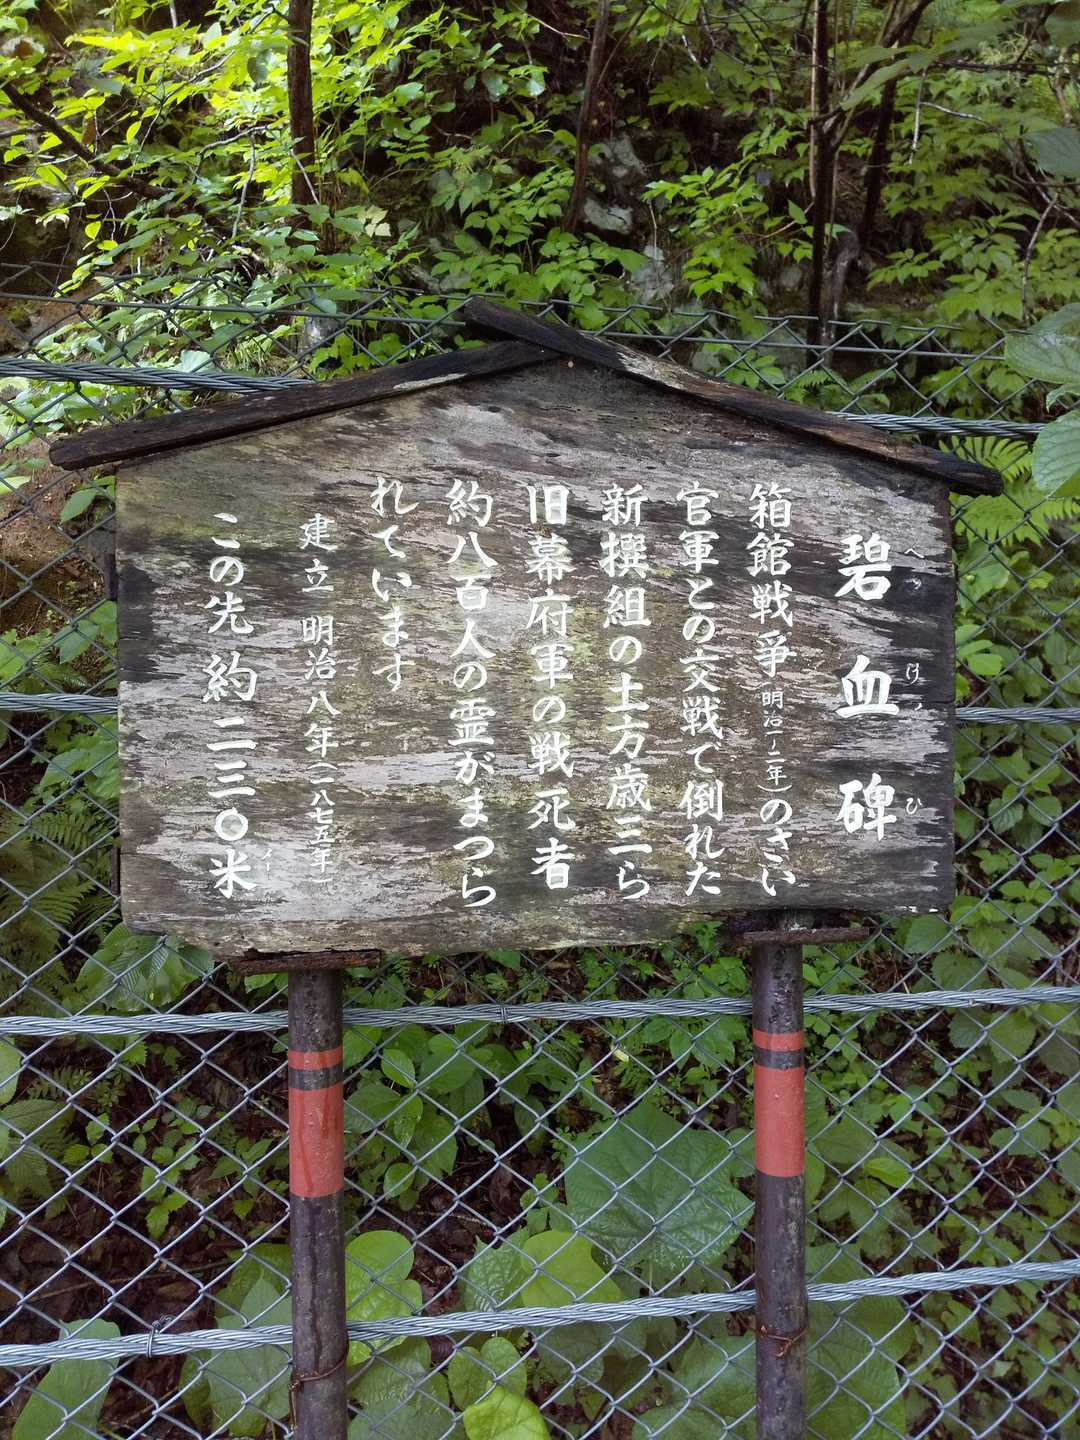 碧血碑
へっけつひ
箱館戦争(明治一~二年)のさい
官軍との交戦で倒れた
新撰組の土方歳三ら
旧幕府軍の戦死者
約八百人の霊がまつら
れています
建立 明治八年(一八七五年)
この先 約二三〇米